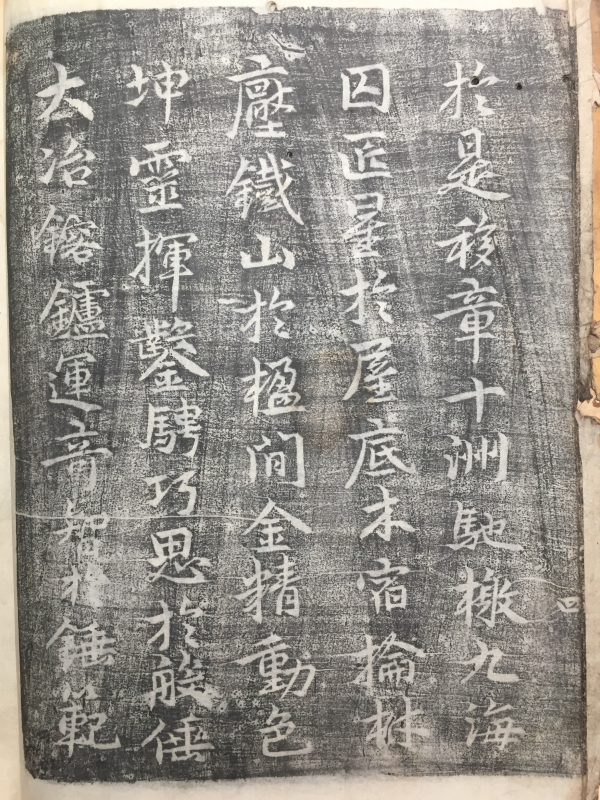 於是移章十洲馳檄九海
囚匠星於屋底木宿掄材
壓鐵山於楹间金精動色
坤靈揮鑿騁巧思於般倕
大冶鎔鑪運奇智於錘範
四